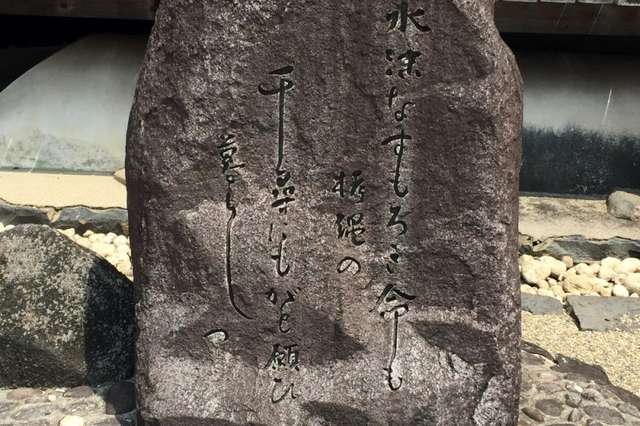 水沫なすもろき命も
栲縄の
千尋にもがも願ひ
暮らしつ